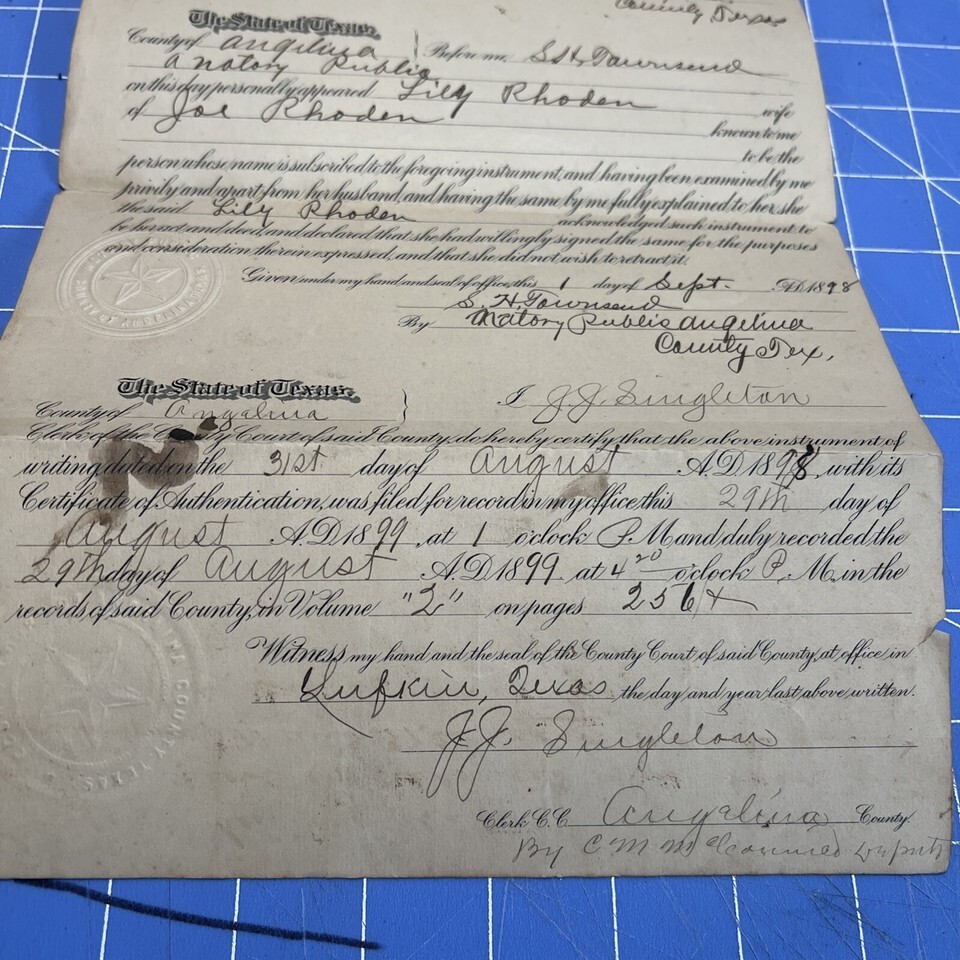 County Texas
The State of Texas.
County of Angelina } Before me, S.H. Townsend
a notary Public
on this day personally appeared Lily Rhoden
of Joe Rhoden wife
known to me
to be the
person whose name is subscribed to the foregoing instrument, and having been examined by me
privily and apart from her husband, and having the same by me fully explained to her, she
the said Lily Rhoden acknowledged such instrument to
be her act and deed, and declared that she had willingly signed the same for the purposes
and consideration therein expressed, and that she did not wish to retract it.
Given under my hand and seal of office, this 1 day of Sept. A.D. 1898
S. H. Townsend
By Notary Public Angelina
County Tex.
The State of Texas.
County of Angelina } I J J Singleton
Clerk of the County Court of said County, do hereby certify that the above instrument of
writing dated on the 31st day of August A.D. 1898, with its
Certificate of Authentication, was filed for record in my office this 29th day of
August A.D. 1899, at 1 o'clock P. M. and duly recorded the
29th day of August A.D. 1899 at 4 20 o'clock P. M. in the
records of said County, in Volume "2" on pages 256
Witness my hand and the seal of the County Court of said County, at office in
Lufkin, Texas the day and year last above written.
J.J. Singleton
Clerk C.C. Angelina County.
By C M Deputy